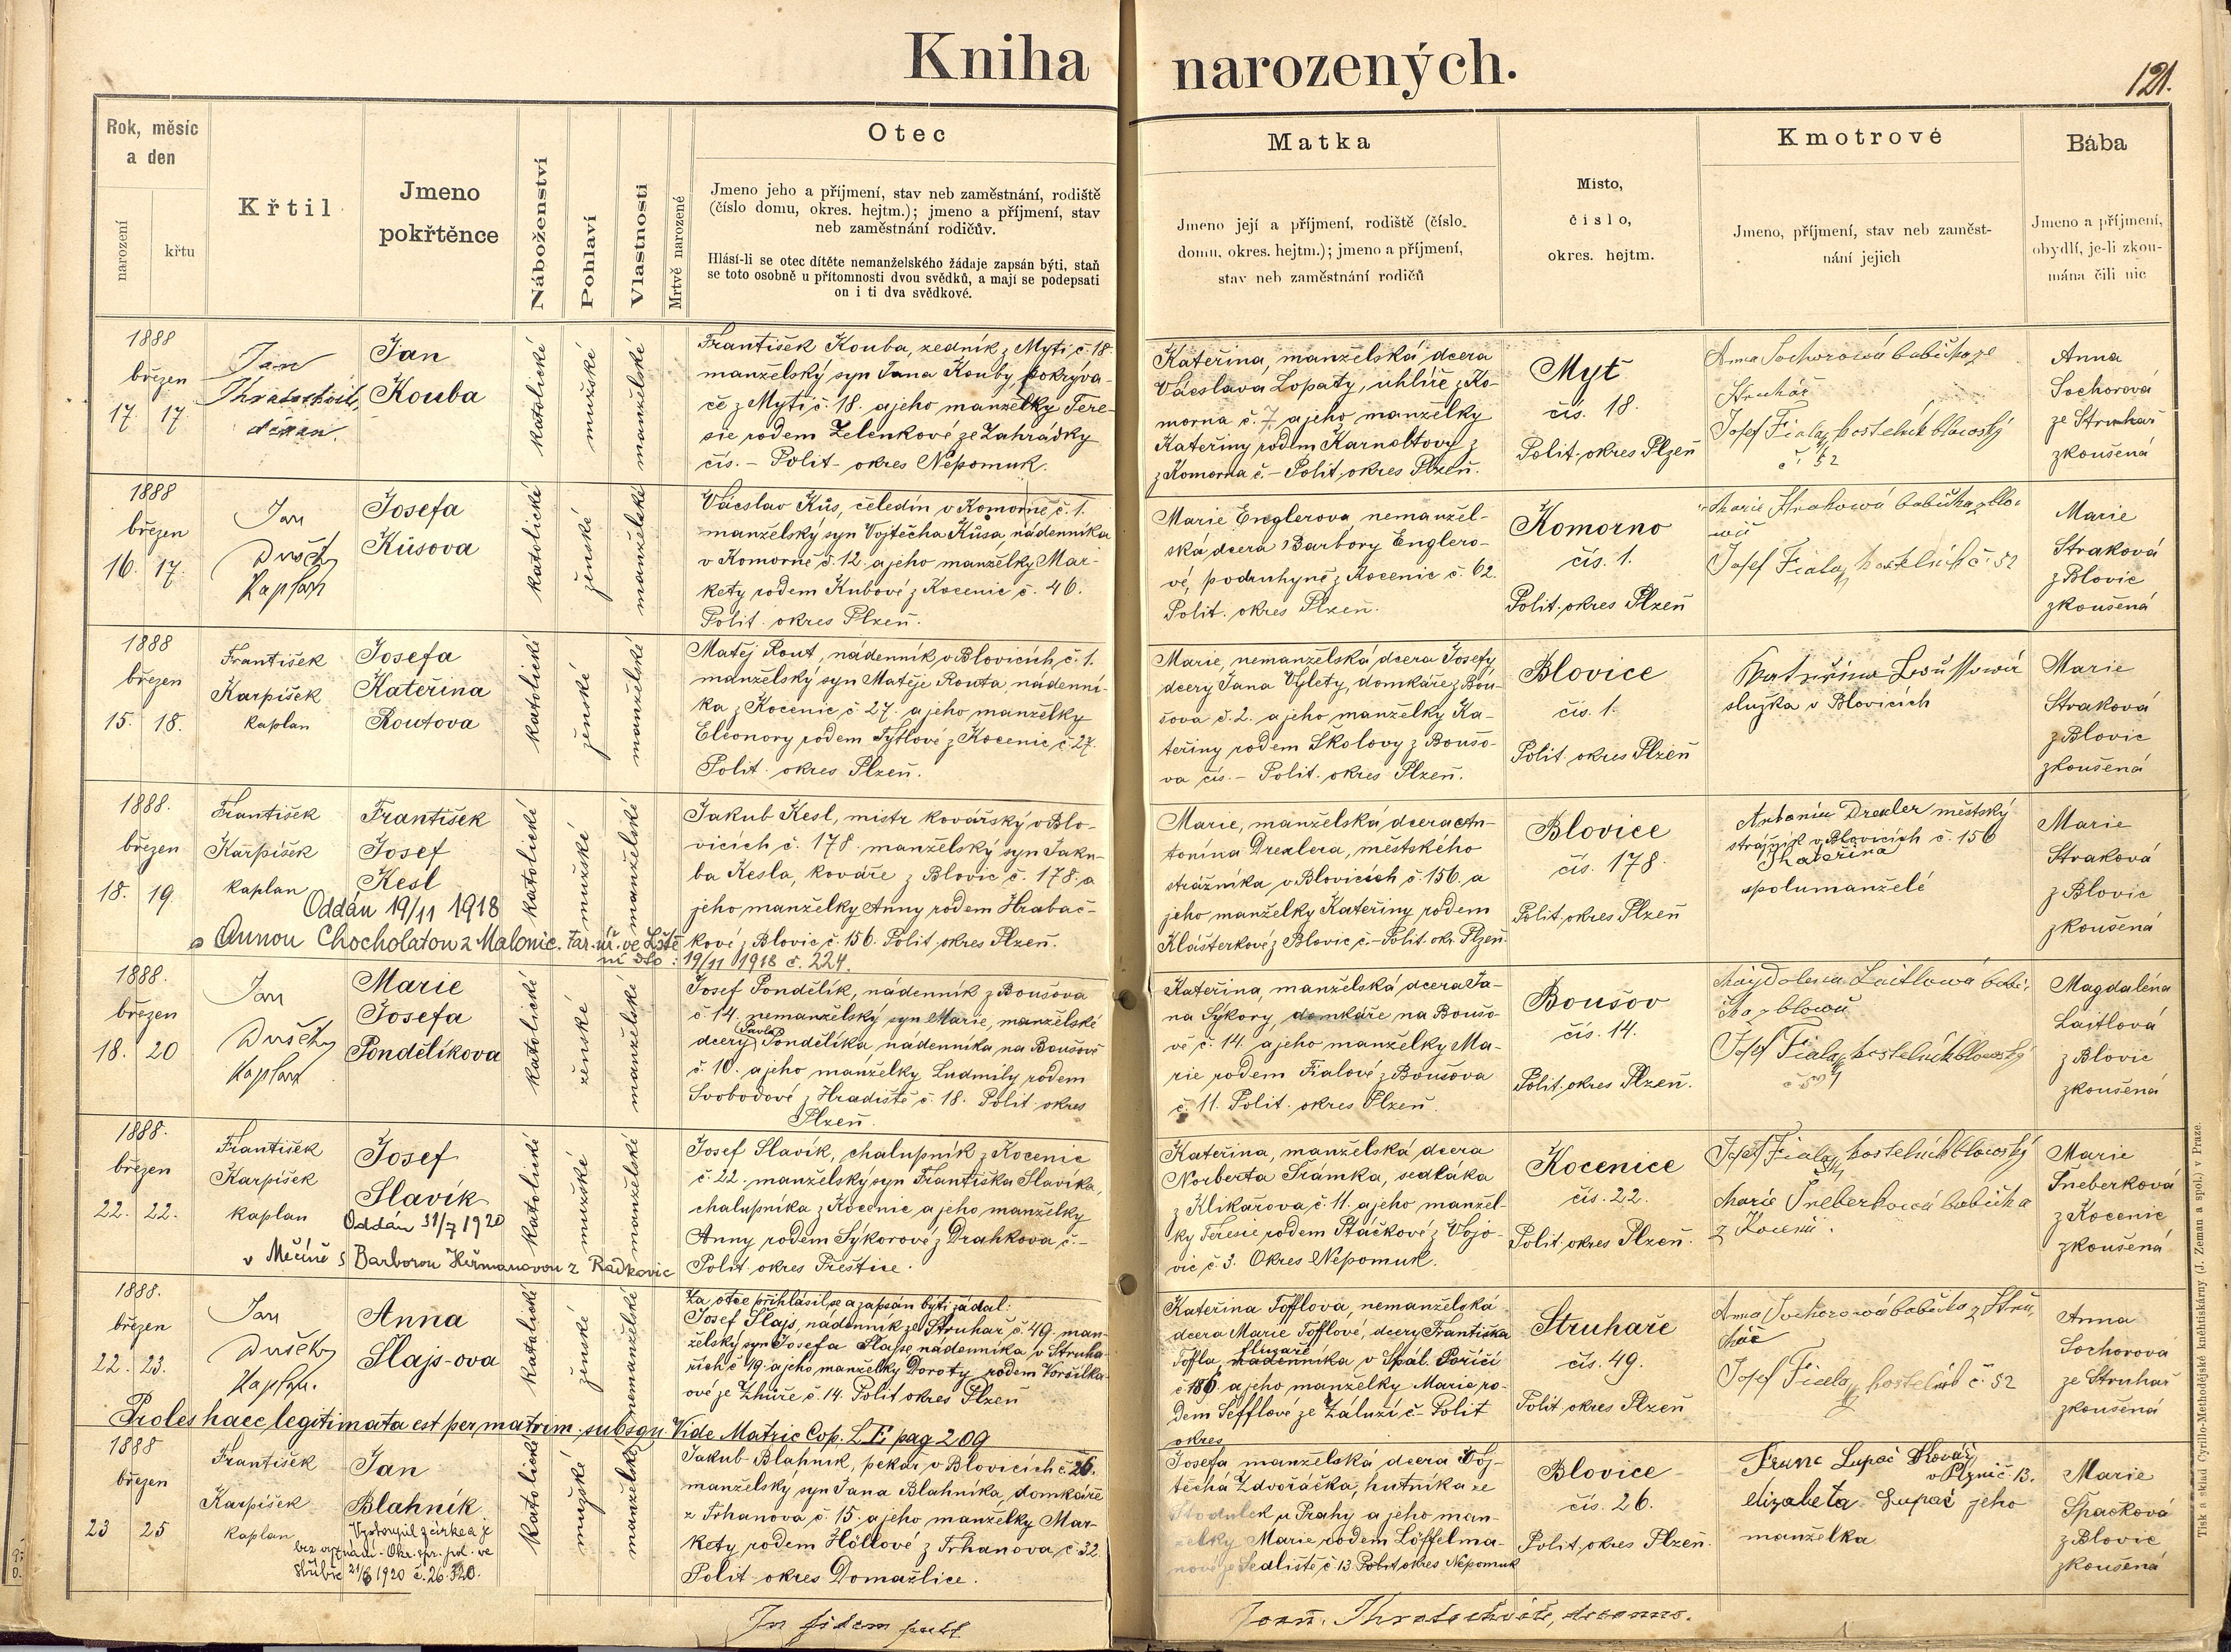 Kniha narozených.
121.
Rok, měsíc
a den
narození
křtu
Křtil
Jmeno
pokřtěnce
Náboženství
Pohlaví
Vlastnosti
Mrtvě narozené
Otec
Jmeno jeho a příjmení, stav neb zaměstnání, rodiště
(číslo domu, okres. hejtm.); jmeno a příjmení, stav
neb zaměstnání rodičův.
Hlásí-li se otec dítěte nemanželského žádaje zapsán býti, staň
se toto osobně u přítomnosti dvou svědků, a mají se podepsati
on i ti dva svědkové.
Matka
Jmeno její a příjmení, rodiště (číslo
domu, okres. hejtm.); jmeno a příjmení,
stav neb zaměstnání rodičů
Místo,
číslo,
okres. hejtm.
Kmotrové
Jmeno, příjmení, stav neb zaměst-
nání jejich
Bába
Jmeno a příjmení,
obydlí, je-li zkou-
mána čili nic
1888
březen
17 17
Jan
děkan.
Jan
Kouba
katolické
mužské
manželské
František Kouba, zedník z Mytí č. 18.
manželský syn Jana Kouby, pokrýva-
če z Mytí č. 18. a jeho manželky Tere-
sie rodem Zelenkové ze Zahrádky
čís. – Polit. okres Nepomuk.
Kateřina, manželská dcera
Václava Lopaty, uhlíře z Ko-
morna č. 7. a jeho manželky
Kateřiny rodem Karnoltovy z
z Komorna č. – Polit. okres Plzeň.
Myť
čís. 18.
Polit. okres Plzeň
Anna Sochorová babička ze
Struhař
Josef Fiala, kostelník blovoský
č. 52
Anna
Sochorová
ze Struhař
zkoušená
1888
březen
16. 17.
Jan
Dušek
Kaplan
Josefa
Kůsova
katolické
ženské
manželské
Václav Kůs, čeledín v Komorně č. 1.
manželský syn Vojtěcha Kůsa, nádenníka
v Komorně č. 12. a jeho manželky Mar-
kety rodem Kubové z Kocenic č. 46.
Polit. okres Plzeň.
Marie Englerova, nemanžel-
ská dcera Barbory Englero-
vé, podruhyně z Kocenic č. 62.
Polit. okres Plzeň.
Komorno
čís. 1.
Polit. okres Plzeň
Marie Straková babička z Blo-
vic
Josef Fiala, kostelník č. 52
Marie
Straková
z Blovic
zkoušená
1888
březen
15. 18.
František
Karpíšek
kaplan
Josefa
Kateřina
Routova
katolické
ženské
manželské
Matěj Rout, nádenník v Blovicích č. 1.
manželský syn Matěje Routa, nádenní-
ka z Kocenic č. 27. a jeho manželky
Eleonory rodem Tytlové z Kocenic č. 27.
Polit. okres Plzeň.
Marie, nemanželská dcera Josefy,
dcery Jana Výlety, domkáře z Bou-
šova č. 2. a jeho manželky Ka-
teřiny rodem Školovy z Boušo-
va čís. – Polit. okres Plzeň.
Blovice
čís. 1.
Polit. okres Plzeň
Kateřina
služka v Blovicích
Marie
Straková
z Blovic
zkoušená
1888.
březen
18. 19.
František
Karpíšek
kaplan
František
Josef
Kesl
Oddán 19/11 1918
s Annou Chocholatou z Malonic. Far. úř. ve Lště
ní dto: 19/11 1918 č. 224.
katolické
mužské
manželské
Jakub Kesl, mistr kovářský v Blo-
vicích č. 178. manželský syn Jaku-
ba Kesla, kováře z Blovic č. 178. a
jeho manželky Anny rodem Hrabač-
kové z Blovic č. 156. Polit. okres Plzeň.
Marie, manželská dcera An-
tonína Drexlera, městského
strážníka v Blovicích č. 156. a
jeho manželky Kateřiny rodem
Klášterkové z Blovic č. – Polit. okr. Plzeň.
Blovice
čís. 178.
Polit. okres Plzeň
Antonín Drexler městský
strážník v Blovicích č. 156
Kateřina
spolumanželé
Marie
Straková
z Blovic
zkoušená
1888.
březen
18. 20
Jan
Dušek
Kaplan
Marie
Josefa
Pondělíkova
katolické
ženské
manželské
Josef Pondělík, nádenník z Boušova
č. 14. nemanželský syn Marie, manželské
dcery Pavla Pondělíka nádenníka na Boušově
č. 10. a jeho manželky Ludmily rodem
Svobodové z Hradiště č. 18. Polit. okres
Plzeň.
Kateřina, manželská dcera Ja-
na Sýkory, domkáře na Boušo-
vě č. 14. a jeho manželky Ma-
rie rodem Fialové z Boušova
č. 11. Polit. okres Plzeň.
Boušov
čís. 14.
Polit. okres Plzeň.
Magdalena Laitlová babi-
čka z Blovic
Josef Fiala, kostelník blovoský
Magdaléna
Laitlová
z Blovic
zkoušená
1888.
březen
22. 22.
František
Karpíšek
kaplan
Josef
Slavík
Oddán 31/7 1920
v Mečíně s Barborou Heřmanovou z Radkovic
katolické
mužské
manželské
Josef Slavík, chalupník z Kocenic
č. 22. manželský syn Františka Slavíka,
chalupníka z Kocenic a jeho manželky
Anny rodem Sýkorové z Drahkova č. –
Polit. okres Přeštice.
Kateřina, manželská dcera
Norberta Šrámka, sedláka
z Klikařova č. 11. a jeho manžel-
ky Teresie rodem Ptáčkové z Vojo-
vic č. 3. Okres Nepomuk.
Kocenice
čís. 22.
Polit. okres Plzeň.
Josef Fiala, kostelník blovoský
Marie Šneberková babička
z Kocenic.
Marie
Šneberková
z Kocenic
zkoušená
1888.
březen
22. 23.
Jan
Dušek
Kaplan.
Anna
Slajs-ova
katolické
ženské
nemanželské
Za otce přihlásil se a zapsán býti žádal:
Josef Slajs, nádenník ze Struhař č. 49. man-
želský syn Josefa Slajse nádenníka v Struha-
řích č. 19. a jeho manželky Doroty rodem Voršilka-
ové ze Zhůře č. 14. Polit. okres Plzeň
Proles haec legitimata est per matrim. subsqu. Vide Matric Cop. L. E. pag 209
Kateřina Tofflova, nemanželská
dcera Marie Tofflové, dcery Františka
Toffla, nádenníka v Spál. Poříčí
č. 186. a jeho manželky Marie ro-
dem Sefflové ze Záluží č. – Polit
okres
Struhaře
čís. 49.
Polit. okres Plzeň
Anna Sochorová babička z Stru-
hař
Josef Fiala, kostelník č. 52
Anna
Sochorová
ze Struhař
zkoušená
1888
březen
23 25
František
Karpíšek
kaplan
Jan
Blahník
Vystoupil z církve a je
bez vyznání – Okr. spr. pol. ve
Stříbře 21/6 1920 č. 26.320.
katolické
mužské
manželské
Jakub Blahník, pekař v Blovicích č. 26.
manželský syn Jana Blahníka, domkáře
z Trhanova č. 15. a jeho manželky Mar-
kety rodem Höllové z Trhanova č. 32.
Polit. okres Domažlice.
Josefa manželská dcera Voj-
těcha Zdvořáčka, hutníka ze
Stodůlek u Prahy a jeho man-
želky Marie rodem Löffelma-
nové ze Sedliště č. 13. Polit. okres Nepomuk
Blovice
čís. 26.
Polit. okres Plzeň.
Franc Lupač Kovář
v Plzni č. 13.
elizabeta Lupač jeho
manželka
Marie
Špačková
z Blovic
zkoušená
In fidem
Joan. decanus.
Tisk a sklad Cyrillo-Methodějské knihtiskárny (J. Zeman a spol. v Praze.